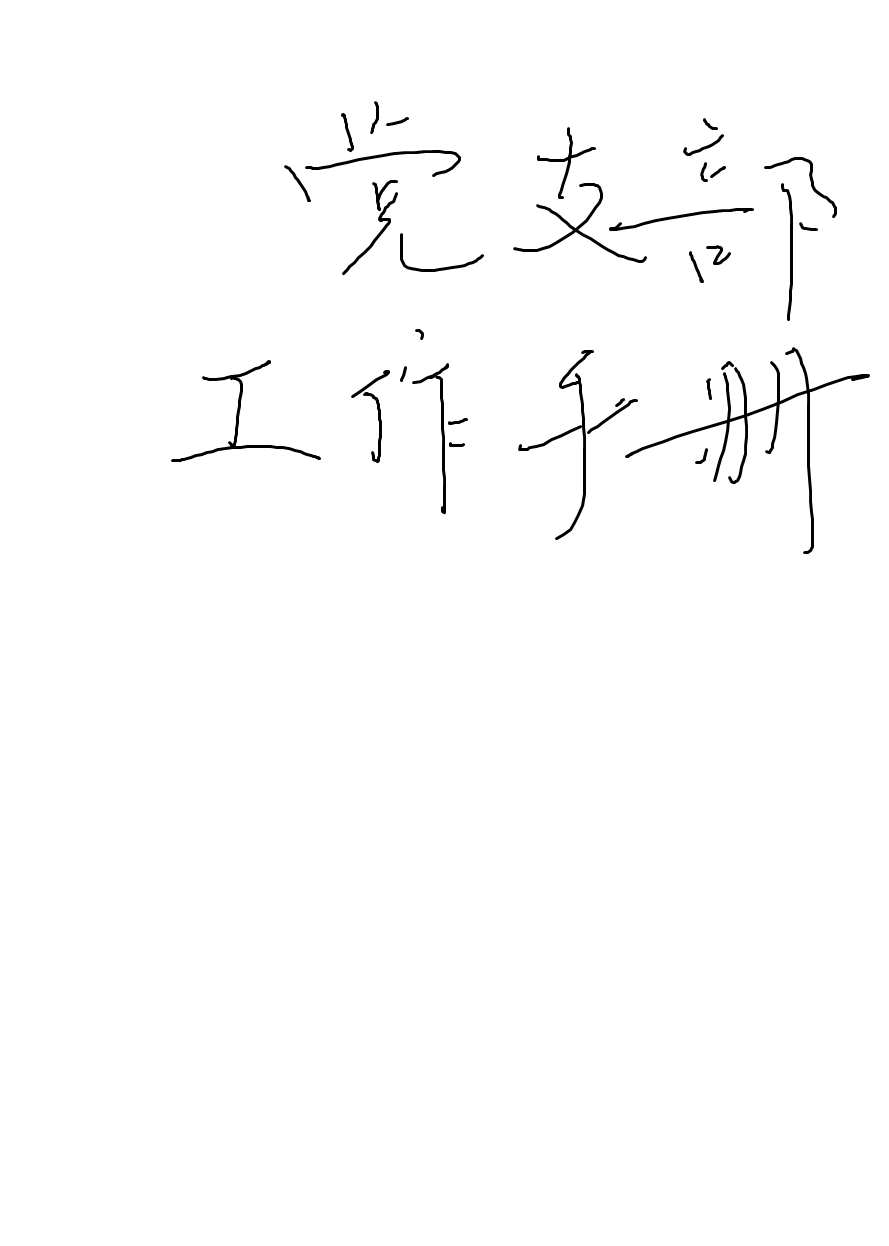 党支部
工作手册